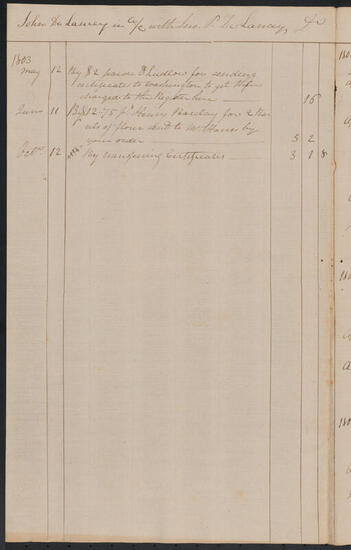 John De Lancey in a/c with Jno. P. De Lancey, Dr
1803
May 12 By $2 paid Ludlow for sending
certificates to Washington to get them
changed to the Register here — 16
June 11 By $12-75 pd Henry Barclay for 2 Bar
rels of flour sent to by
your order — 5 2
Octr 12 By transferring Certificates — 3 1 8